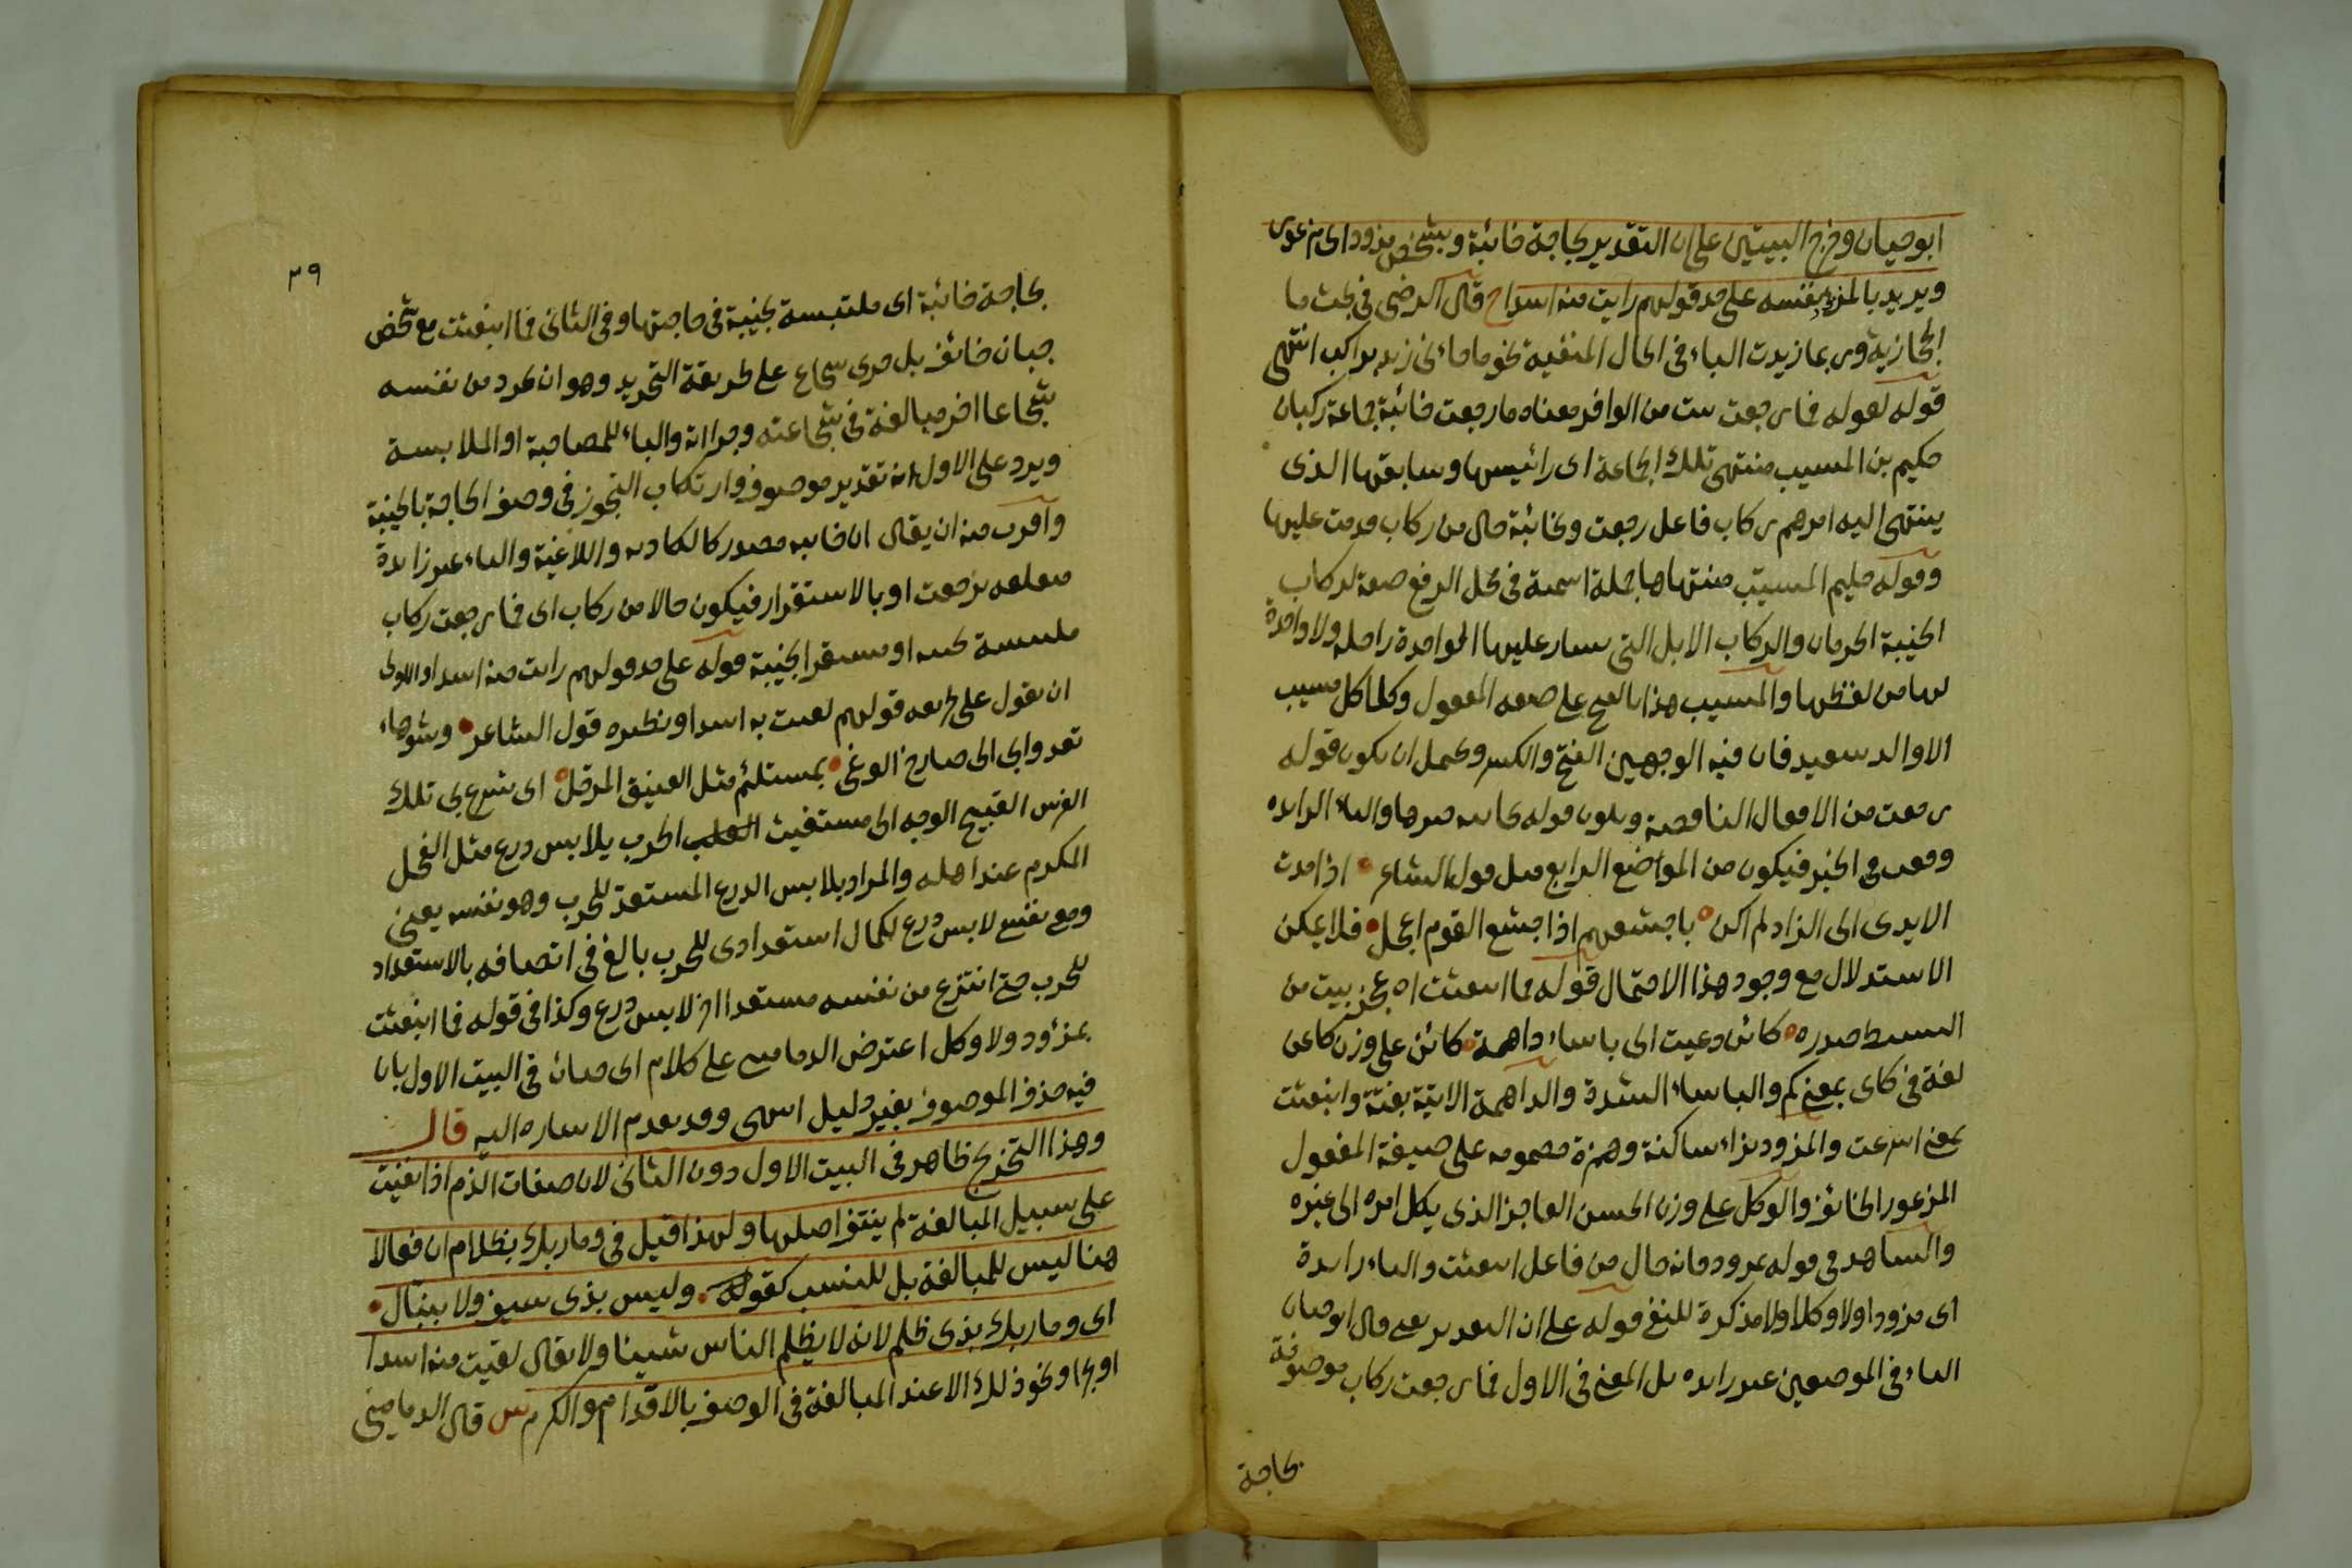 ابوحيان وخرج البيتين على ان التقدير بحاجة خائبة وبشخص مزود اى مذعور
ويريد بالمزود نفسه على حد قولهم رايت منه اسدا ح قال الرضى فى بحث ما
الحجازية وربما زيدت الباء فى الحال المنفية نحو ما جاءنى زيد براكب انتهى
قوله لقوله فما رجعت بيت من الوافر معناه ما رجعت خائبة جماعة ركبان
حكيم بن المسيب منتهى تلك الجماعة اى رائيسها وسابقها الذى
ينتهى اليه امرهم ركاب فاعل رجعت وبخائبة حال من ركاب قدمت عليها
وقوله حكيم المسيب منتهاها جملة اسمية فى محل الرفع صفة لركاب
الخيبة الحرمان والركاب الابل التى يسار عليها الواحدة راحلة ولا واحدة
لها من لفظها والمسيب هذا بالفتح على صيغة المفعول وكذا كل مسيب
الا والد سعيد فان فيه الوجهين الفتح والكسر ويحتمل ان يكون قوله
رجعت من الافعال الناقصة ويكون قوله بخائبة خبرها والباء الزايدة
وقعت فى الخبر فيكون من المواضع الرابع مثل قول الشاعر اذا مدت
الايدى الى الزاد لم اكن باجشعهم اذا جشع القوم اعجل فلا يمكن
الاستدلال مع وجود هذا الاحتمال قوله فما انبعثت اه عجز بيت من
البسيط صدره كائن دعيت الى باساء داهمة كائن على وزن كاعن
لغة فى كاى بمعنى كم والباساء الشدة والداهمة الاتية بغتة وانبعثت
بمعنى اسرعت والمزود بزاء ساكنة وهمزة مضمومة على صيغة المفعول
المذعور الخائف والوكل على وزن الحسن العاجز الذى يكل امره الى غيره
والشاهد فى قوله بمزود فانه حال من فاعل انبعثت والباء زايدة
اى مزودا ولا وكلا ولا مذكرة للنفى قوله على ان التقدير يعنى قال ابوحيان
الباء فى الموضعين غير زايدة بل المعنى فى الاول فما رجعت ركاب موصوفة
بحاجة
٣٩
بحاجة خائبة اى ملتبسة بخيبة فى حاجتها وفى الثانى فما انبعثت مع شخص
جبان خائف بل جرى شجاع على طريقة التجريد وهو ان تجرد من نفسه
شجاعا اخر مبالغة فى شجاعته وجرائة والباء للمصاحبة او الملابسة
ويرد على الاول انه تقدير موصوف وارتكاب التجوز فى وصف الحاجة بالخيبة
واقرب منه ان يقال ان خايبة مصدر كالكاذبة واللاغية والباء غير زايدة
متعلقة برجعت او بالاستقرار فيكون حالا من ركاب اى فما رجعت ركاب
ملتبسة بخيبة او مستقرا بخيبة قوله على حد قولهم رايت منه اسدا والاولى
ان يقول على طريقة قولهم لقيت به اسدا ونظيره قول الشاعر وشوهاء
تعدو بى الى صارخ الوغى بمستلئم مثل الفنيق المرحل اى تسرع بى تلك
الفرس القبيح الوجه الى مستغيث الحرب بلابس درع مثل الفحل
المكرم عند اهله والمراد بلابس الدرع المستعد للحرب وهو نفسه يعنى
ومعى بنفسى لابس درع لكمال استعدادى للحرب بالغ فى اتصافه بالاستعداد
للحرب حتى انتزع من نفسه مستعدا اخر لابس درع وكذا فى قوله فما انبعثت
بمزؤد ولا وكل اعترض الدمامينى على كلام ابى حيان فى البيت الاول بان
فيه حذف الموصوف بغير دليل انتهى وقد تقدم الاشارة اليه قال
وهذا التخريج ظاهر فى البيت الاول دون الثانى لان صفات الذم اذا نفيت
على سبيل المبالغة لم ينتف اصلها ولهذا قيل فى وما ربك بظلام ان فعالا
هنا ليس للمبالغة بل للنسب كقوله وليس بذى سيف ولا بنبال
اى وما ربك بذى ظلم لانه لا يظلم الناس شيئا ولا يقال لقيت منه اسدا
او بحرا ونحو ذلك الا عند المبالغة فى الوصف بالاقدام والكرم س قال الدمامينى